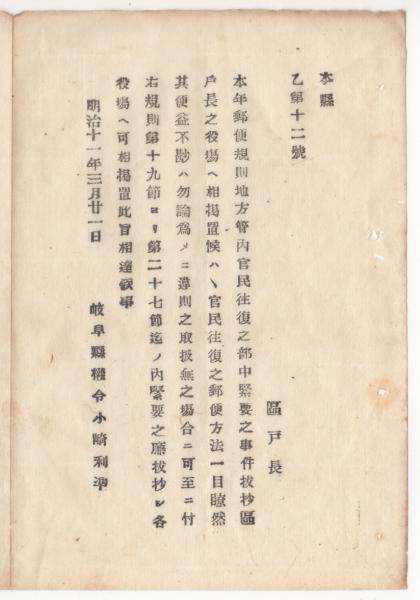 本縣
乙第十二號
區戸長
本年郵便規則地方管内官民往復之部中緊要之事件抜抄區
戸長之役場ヘ相掲置候ハヽ官民往復之郵便方法一目瞭然
其便益不尠ハ勿論爲メニ違則之取扱無之場合ニ可至ニ付
右規則第十九節ヨリ第二十七節迄ノ内緊要之廉抜抄シ各
役場ヘ可相掲置此旨相達候事
明治十一年三月廿一日
岐阜縣權令小崎利準